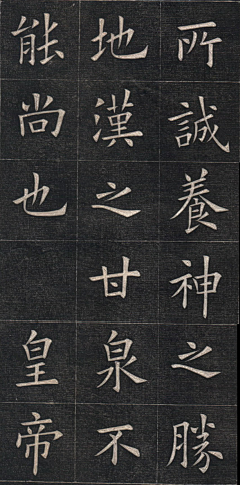 所誠養神之勝
地漢之甘泉不
能尚也皇帝